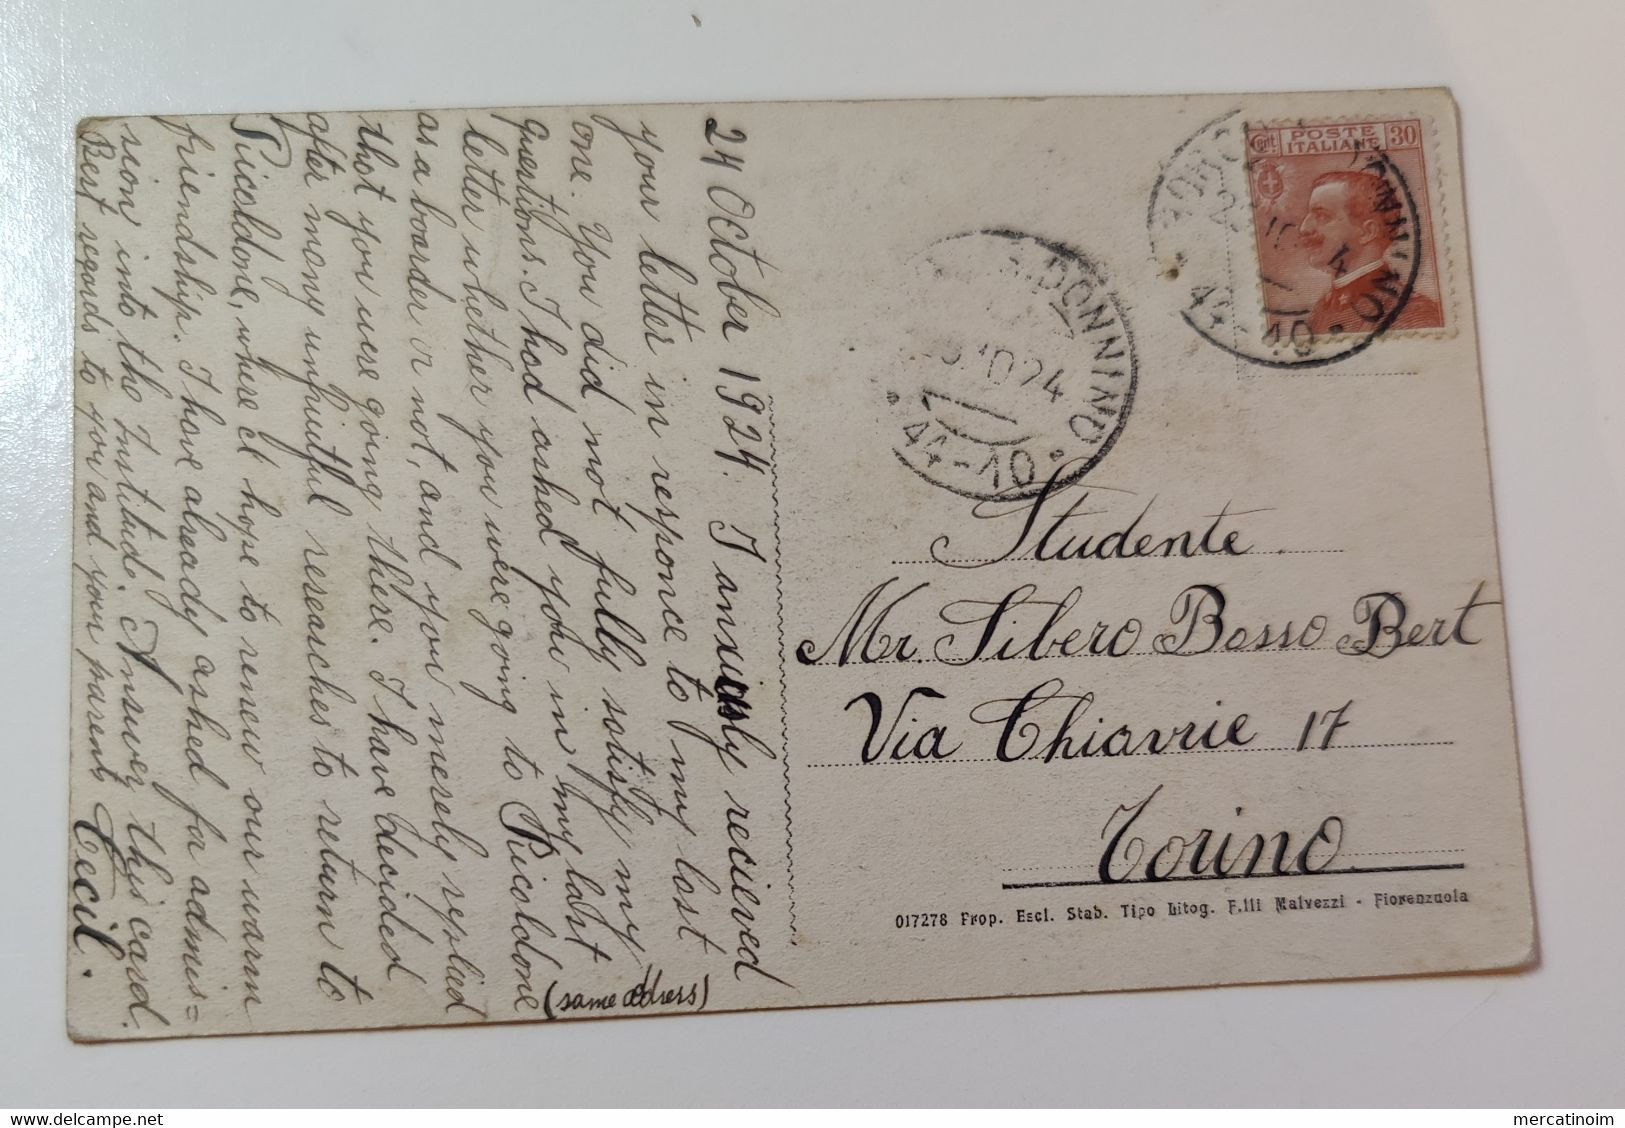 24 October 1924. I anxiously recieved
your letter in responce to my last
one. You did not fully satisfy my
questions. I had asked you in my last
letter whether you were going to Pricoldone
as a boarder or not, and you merely replied
that you were going there. I have decided
after many unfruitful reseasches to return to
Pricoldone, where I hope to renew our warm
friendship. I have already asked for admis=
sion into the Institude. Answer this card.
Best regards to you and your parents Cecil.
(same address)
POSTE
ITALIANE
Cent. 30
DONNINO
10 24
44-10
DONNINO
44-10
Studente
Mr. Libero Bosso Bert
Via Chiavrie 17
Torino
017278 Prop. Escl. Stab. Tipo Litog. F.lli Malvezzi - Fiorenzuola
delcampe.net
mercatinoim